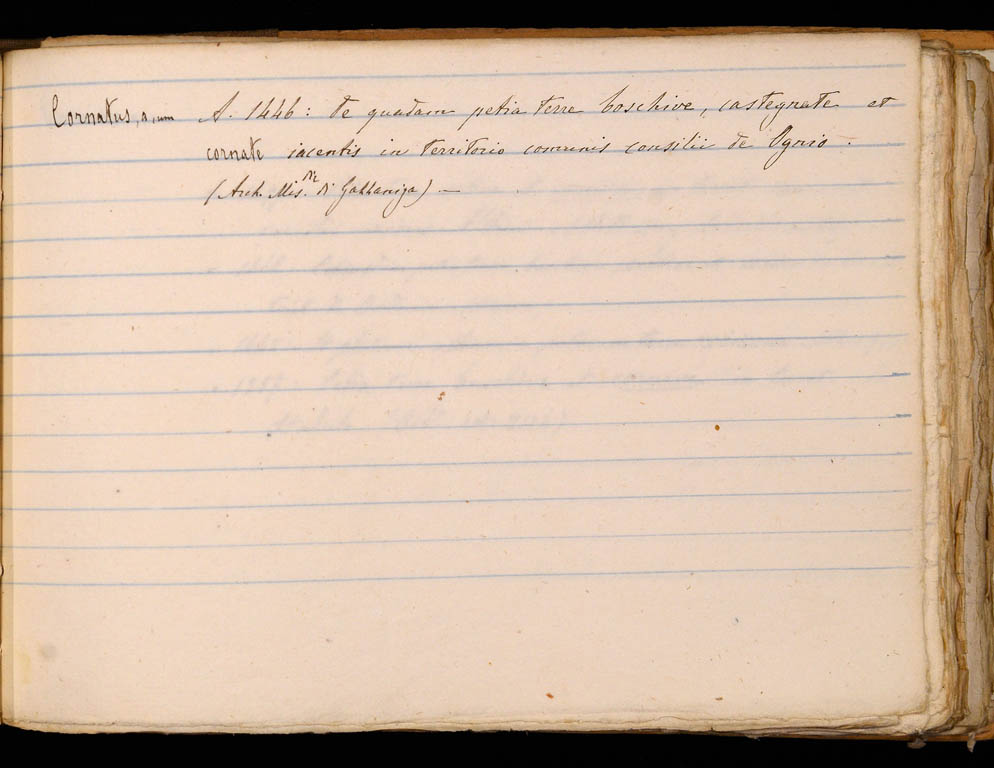 Cornatus, a, um A. 1446: de quadam petia terre boschive, castegnate et
cornate iacentis in territorio comunis consilii de Ognio.
(Arch. Mis.di di Gazzaniga) —